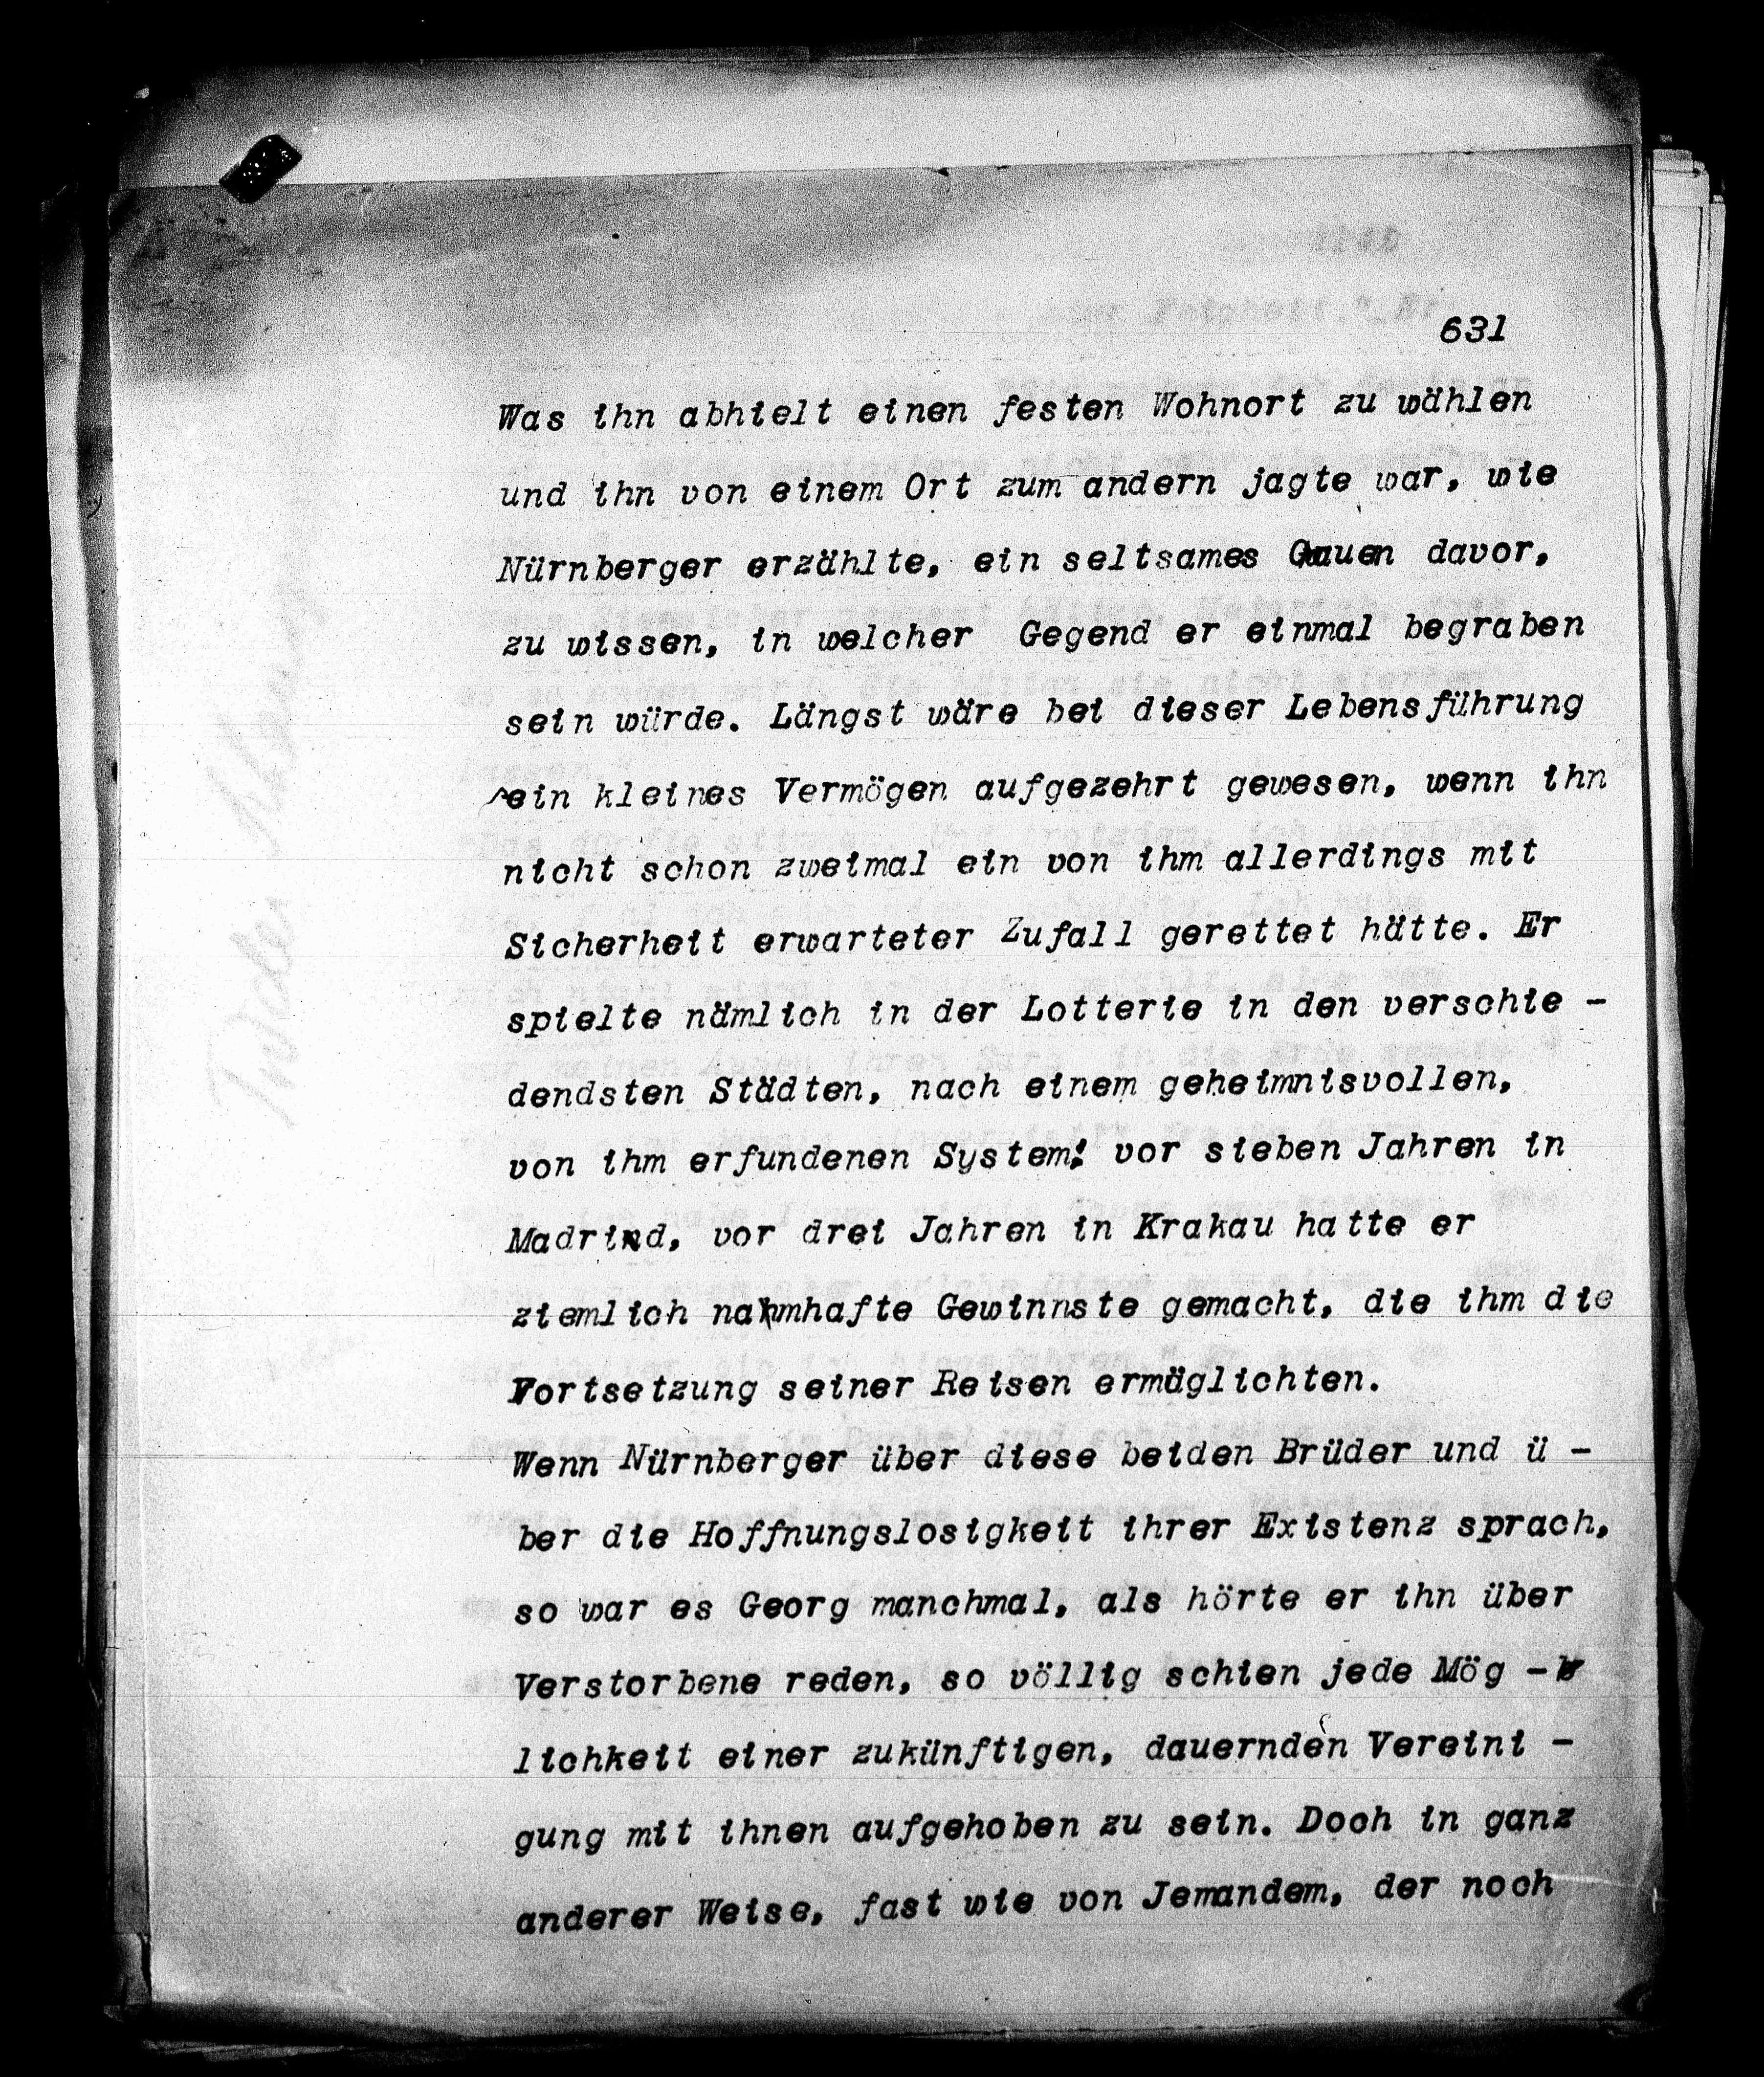 631
Was ihn abhielt einen festen Wohnort zu wählen
und ihn von einem Ort zum andern jagte war, wie
Nürnberger erzählte, ein seltsames Grauen davor,
zu wissen, in welcher Gegend er einmal begraben
sein würde. Längst wäre bei dieser Lebensführung
sein kleines Vermögen aufgezehrt gewesen, wenn ihn
nicht schon zweimal ein von ihm allerdings mit
Sicherheit erwarteter Zufall gerettet hätte. Er
spielte nämlich in der Lotterie in den verschie -
dendsten Städten, nach einem geheimnisvollen,
von ihm erfundenen System: vor sieben Jahren in
Madrid, vor drei Jahren in Krakau hatte er
ziemlich namhafte Gewinnste gemacht, die ihm die
Fortsetzung seiner Reisen ermäglichten.
Wenn Nürnberger über diese beiden Brüder und ü -
ber die Hoffnungslosigkeit ihrer Existenz sprach,
so war es Georg manchmal, als hörte er ihn über
Verstorbene reden, so völlig schien jede Mög -
lichkeit einer zukünftigen, dauernden Vereini -
gung mit ihnen aufgehoben zu sein. Doch in ganz
anderer Weise, fast wie von Jemandem, der noch